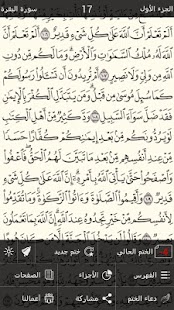 الجزء الأول 17 سورة البقرة
أَلَمْ تَعْلَمْ أَنَّ ٱللَّهَ عَلَىٰ كُلِّ شَىْءٍ قَدِيرٌ ١٠٦
أَلَمْ تَعْلَمْ أَنَّ ٱللَّهَ لَهُۥ مُلْكُ ٱلسَّمَٰوَٰتِ وَٱلْأَرْضِ وَمَا لَكُم مِّن دُونِ
ٱللَّهِ مِن وَلِىٍّ وَلَا نَصِيرٍ ١٠٧ أَمْ تُرِيدُونَ أَن تَسْـَٔلُوا۟ رَسُولَكُمْ
كَمَا سُئِلَ مُوسَىٰ مِن قَبْلُ وَمَن يَتَبَدَّلِ ٱلْكُفْرَ بِٱلْإِيمَٰنِ
فَقَدْ ضَلَّ سَوَآءَ ٱلسَّبِيلِ ١٠٨ وَدَّ كَثِيرٌ مِّنْ أَهْلِ ٱلْكِتَٰبِ
لَوْ يَرُدُّونَكُم مِّنۢ بَعْدِ إِيمَٰنِكُمْ كُفَّارًا حَسَدًا مِّنْ عِندِ
أَنفُسِهِم مِّنۢ بَعْدِ مَا تَبَيَّنَ لَهُمُ ٱلْحَقُّ فَٱعْفُوا۟ وَٱصْفَحُوا۟
حَتَّىٰ يَأْتِىَ ٱللَّهُ بِأَمْرِهِۦٓ إِنَّ ٱللَّهَ عَلَىٰ كُلِّ شَىْءٍ قَدِيرٌ
١٠٩ وَأَقِيمُوا۟ ٱلصَّلَوٰةَ وَءَاتُوا۟ ٱلزَّكَوٰةَ وَمَا تُقَدِّمُوا۟
لِأَنفُسِكُم مِّنْ خَيْرٍ تَجِدُوهُ عِندَ ٱللَّهِ إِنَّ ٱللَّهَ بِمَا تَعْمَلُونَ
الختم الحالي ختم جديد
الفهرس الأجزاء الصفحات
دعاء الختم مشاركة أعمالنا